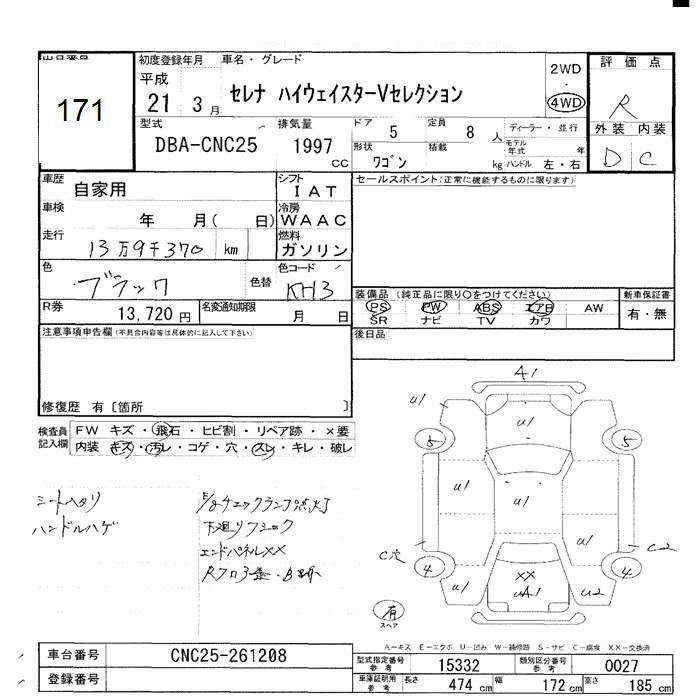 出品番号
171
初度登録年月
平成
21 3 月
車名・グレード
セレナ ハイウェイスターVセレクション
2WD
・
4WD
評価点
R
外装 内装
D C
型式
DBA-CNC25
排気量
1997 cc
ドア 5
定員 8 人
形状 ワゴン
積載 kg
ディーラー・並行
モデル年式 年
ハンドル 左・右
車歴 自家用
シフト
IAT
車検 年 月( 日)
冷房
WAAC
走行 13万9千370 km
燃料
ガソリン
色 ブラック 色替
色コード
KH3
R券 13,720 円
名変通知期限 月 日
セールスポイント(正常に機能するものに限ります)
装備品 (純正品に限り〇をつけてください)
PS PW ABS エアB AW
SR ナビ TV カワ
新車保証書
有・無
後日品
注意事項申告欄(不具合内容等は具体的に記入して下さい)
修復歴 有〔箇所 〕
検査員記入欄
FW キズ・飛石・ヒビ割・リペア跡・×要
内装 キズ・汚レ・コゲ・穴・スレ・キレ・破レ
シートヘタリ
ハンドルハゲ
E/gチェックランプ点灯
下廻リフショク
エンドパネルXX
A1
u1 u1
5 5
u1 u1 u1
C穴 C2
4 4
u1 XX u2
uA1
有
スペア
A-キズ E-エクボ U-凹み W-補修跡 S-サビ C-腐食 XX-交換済
車台番号 CNC25-261208
登録番号
型式指定番号参考 15332
類別区分番号参考 0027
車庫証明用参考 長さ 474 cm 幅 172 cm 高さ 185 cm